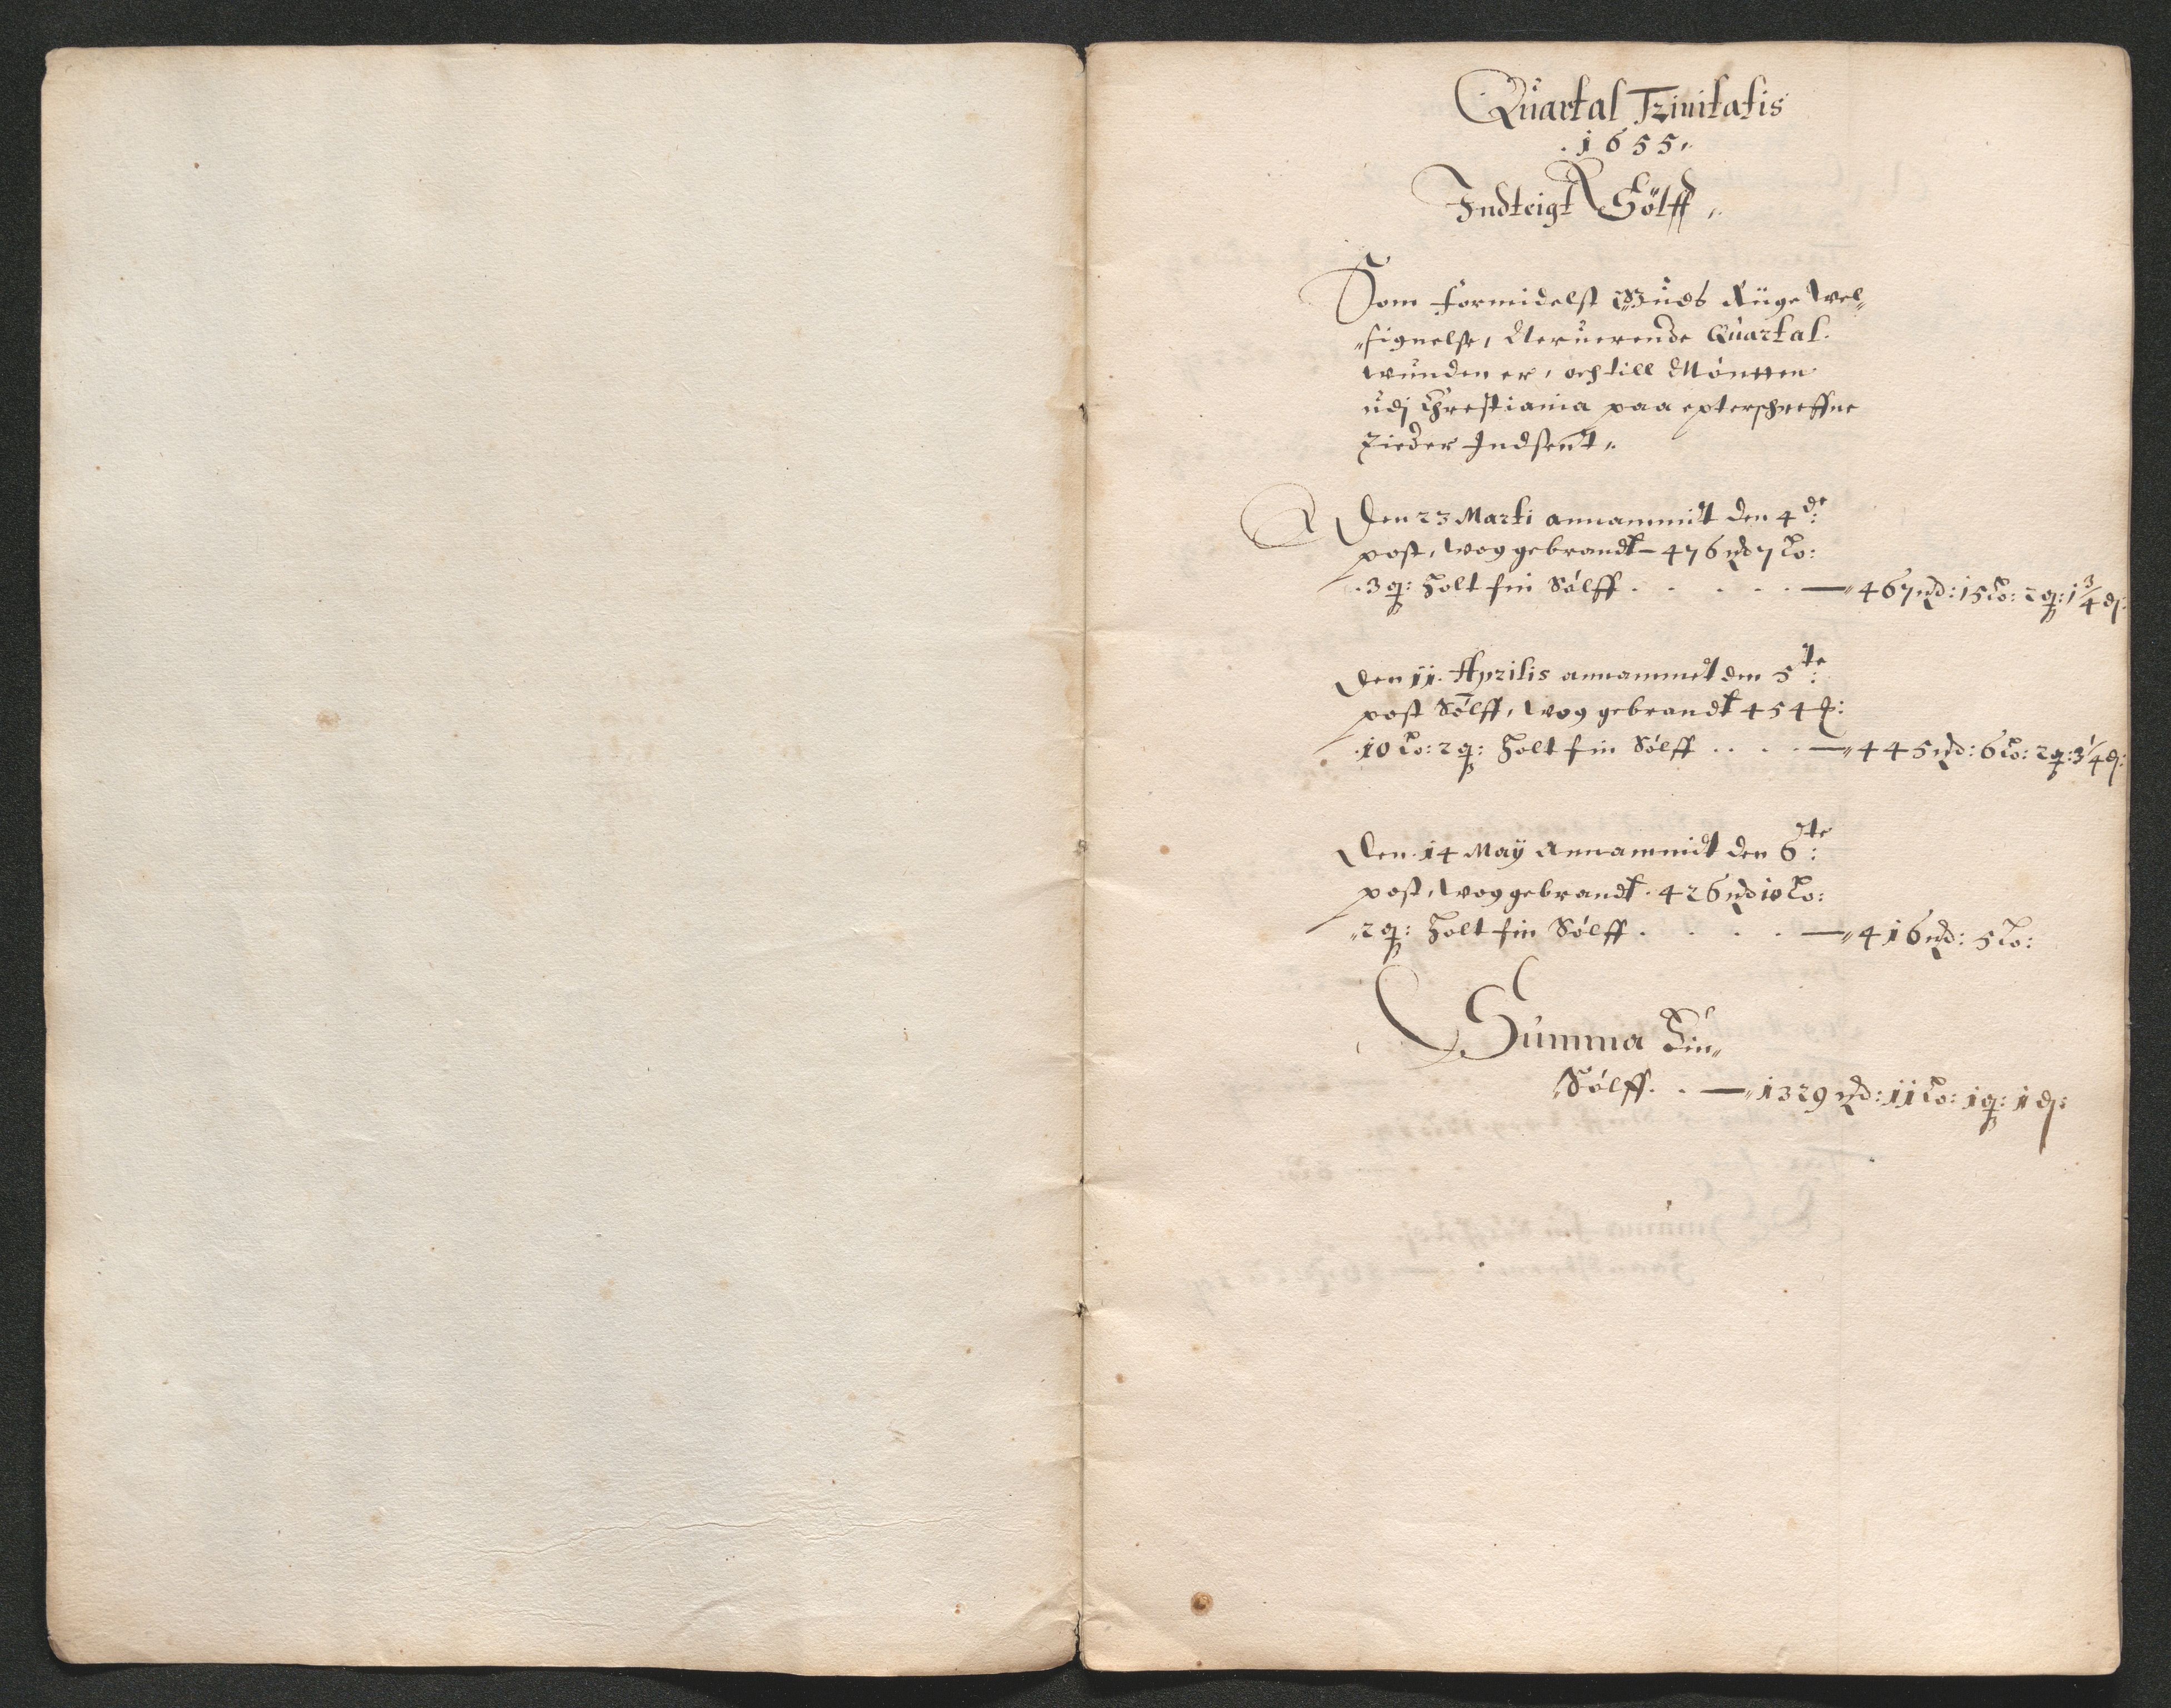 Quartal Trinitatis
. 1655,
Indteigt Sölff,,
Som formidelst Guds Rüge Wel„
„signelse, Neruerende Quartal.
wunden er, och till Mönnten
udj Chrestiania paa epterschreffne
Tieder Indsent,,
Den 23 Marti annammidt den 4 de:
post, Wog gebrandt - 476 md 7 Lo:
. 3 q: Holt fin Sölff . . . . . — „ 467 md: 15 Lo: 2 q: 1 3/4 d:
Den 11. Aprilis annammet den 5 te:
post Sölff, Wog gebrandt 454 :
. 10 Lo: 2 q: Holt fin Sölff . . . . — „ 445 md: 6 Lo: 2 q: 3 1/4 d:
Den. 14 Maÿ Annammidt den 6 te:
post, Wog gebrandt . 426 md 10 Lo:
„ 2 q: Holt fin Sölff . . . . — „ 416 md: 5 Lo:
Summa Fin„
„Sölff. . — „ 1329 md: 11 Lo: 1 q: 1 d: